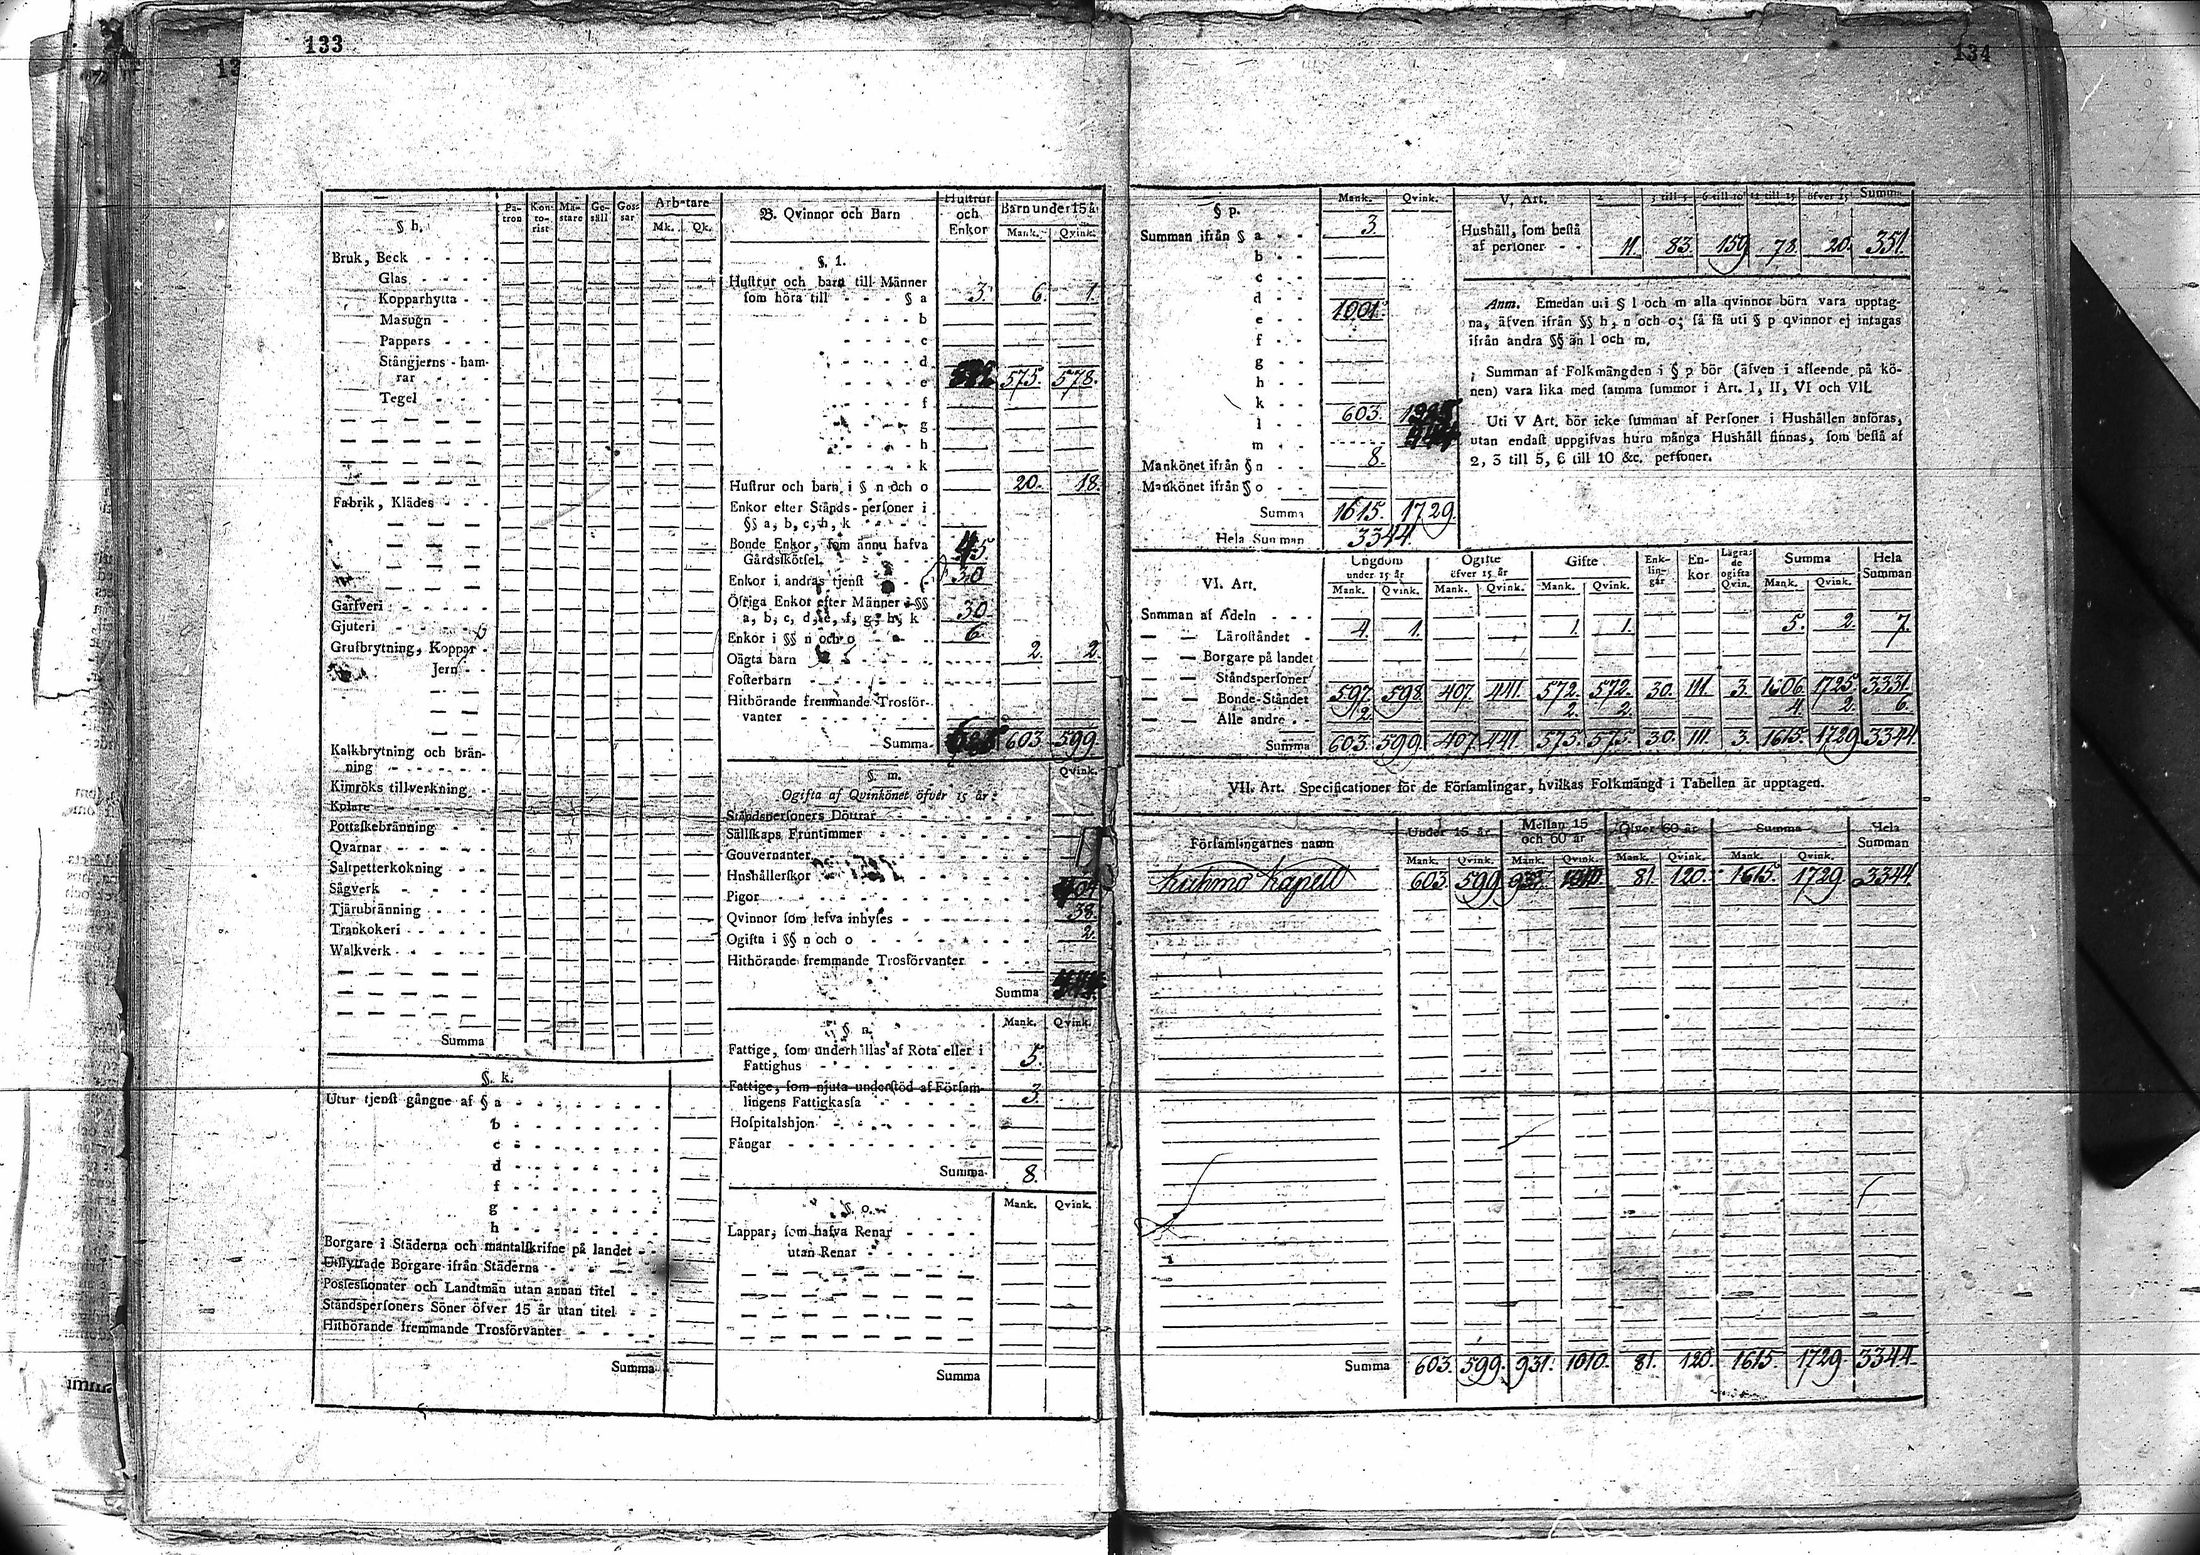 133
134
§ h.
Pa-tron
Kon-to-rist
Mä-stare
Ge-säll
Gos-sar
Arbetare
Mk. Qk.
Bruk, Beck
Glas
Kopparhytta
Masugn
Pappers
Stångjerns-ham-
rar
Tegel
Fabrik, Klädes
Garfveri
Gjuteri
Grufbrytning, Koppar
Jern
Kalkbrytning och brän-
ning
Kimröks tillverkning
Kolare
Pottaskebränning
Qvarnar
Saltpetterkokning
Sågverk
Tjärubränning
Trankokeri
Walkverk
Summa
§. k.
Utur tjenst gångne af § a
b
c
d
f
g
h
Borgare i Städerna och mantalskrifne på landet
Utflyttade Borgare ifrån Städerna
Possessionater och Landtmän utan annan titel
Ståndspersoners Söner öfver 15 år utan titel
Hithörande fremmande Trosförvanter
Summa
B. Qvinnor och Barn
Hustrur och Enkor
Barn under 15 år
Mank. Qvink.
§. 1.
Hustrur och barn till Männer
som höra till § a 3. 6. 1.
b
c
d
e 575. 578.
f
g
h
k
Hustrur och barn i § n och o 20. 18.
Enkor efter Stånds-personer i
§§ a, b, c, h, k
Bonde Enkor, som ännu hafva
Gårdsskötsel 45
Enkor i andras tjenst 30
Öfriga Enkor efter Männer i §§
a, b, c, d, e, f, g, h, k 30
Enkor i §§ n och o 6.
Oägta barn 2. 2.
Fosterbarn
Hithörande fremmande Trosför-
vanter
Summa 603 599
§. m.
Qvink.
Ogifta af Qvinkönet öfver 15 år
Ståndspersoners Döttrar
Sällskaps Fruntimmer
Gouvernanter
Hushållerskor
Pigor 404
Qvinnor som lefva inhyses 38.
Ogifta i §§ n och o 2.
Hithörande fremmande Trosförvanter
Summa
§ n.
Mank. Qvink.
Fattige, som underhållas af Rota eller i
Fattighus 5.
Fattige, som njuta understöd af Försam-
lingens Fattigkassa 3.
Hospitalshjon
Fångar
Summa 8.
§ o.
Mank. Qvink.
Lappar, som hafva Renar
utan Renar
Summa
§ p.
Mank. Qvink.
Summan ifrån § a 3.
b
c
d 1001.
e
f
g
h
k 603.
l
m
Mankönet ifrån § n 8.
Mankönet ifrån § o
Summa 1615. 1729.
Hela Summan 3344.
V, Art.
2 3 till 5 6 till 10 11 till 15 öfver 15 Summa
Hushåll, som bestå
af personer 11. 83. 159 78. 20. 351.
Anm. Emedan uti § l och m alla qvinnor böra vara upptag-
na, äfven ifrån §§ h, n och o; så få uti § p qvinnor ej intagas
ifrån andra §§ än l och m.
Summan af Folkmängden i § p bör (äfven i afseende på kö-
nen) vara lika med samma summor i Art. I, II, VI och VII.
Uti V Art. bör icke summan af Personer i Hushållen anföras,
utan endast uppgifvas huru många Hushåll finnas, som bestå af
2, 3 till 5, 6 till 10 &c. personer.
VI. Art.
Ungdom under 15 år
Ogifte öfver 15 år
Gifte
Enk-lin-gar
En-kor
Lägra-de ogifta Qvin.
Summa
Hela Summan
Mank. Qvink. Mank. Qvink. Mank. Qvink. Mank. Qvink.
Summan af Adeln
Läroståndet 4. 1. 1. 1. 5. 2. 7.
Borgare på landet
Ståndspersoner
Bonde-Ståndet 597. 598. 407. 441. 572. 572. 30. 111. 3. 1606. 1725. 3331.
Alle andre 2. 2. 2. 4. 2. 6.
Summa 603. 599. 407. 441. 575. 575. 30. 111. 3. 1615. 1729 3344.
VII. Art. Specificationer för de Församlingar, hvilkas Folkmängd i Tabellen är upptagen.
Församlingarnes namn
Under 15 år
Mellan 15 och 60 år
Öfver 60 år
Summa
Hela Summan
Mank. Qvink. Mank. Qvink. Mank. Qvink. Mank. Qvink.
Kuhmo Kapell 603. 599. 931. 1010. 81. 120. 1615. 1729 3344.
Summa 603. 599. 931. 1010. 81. 120. 1615 1729. 3344.